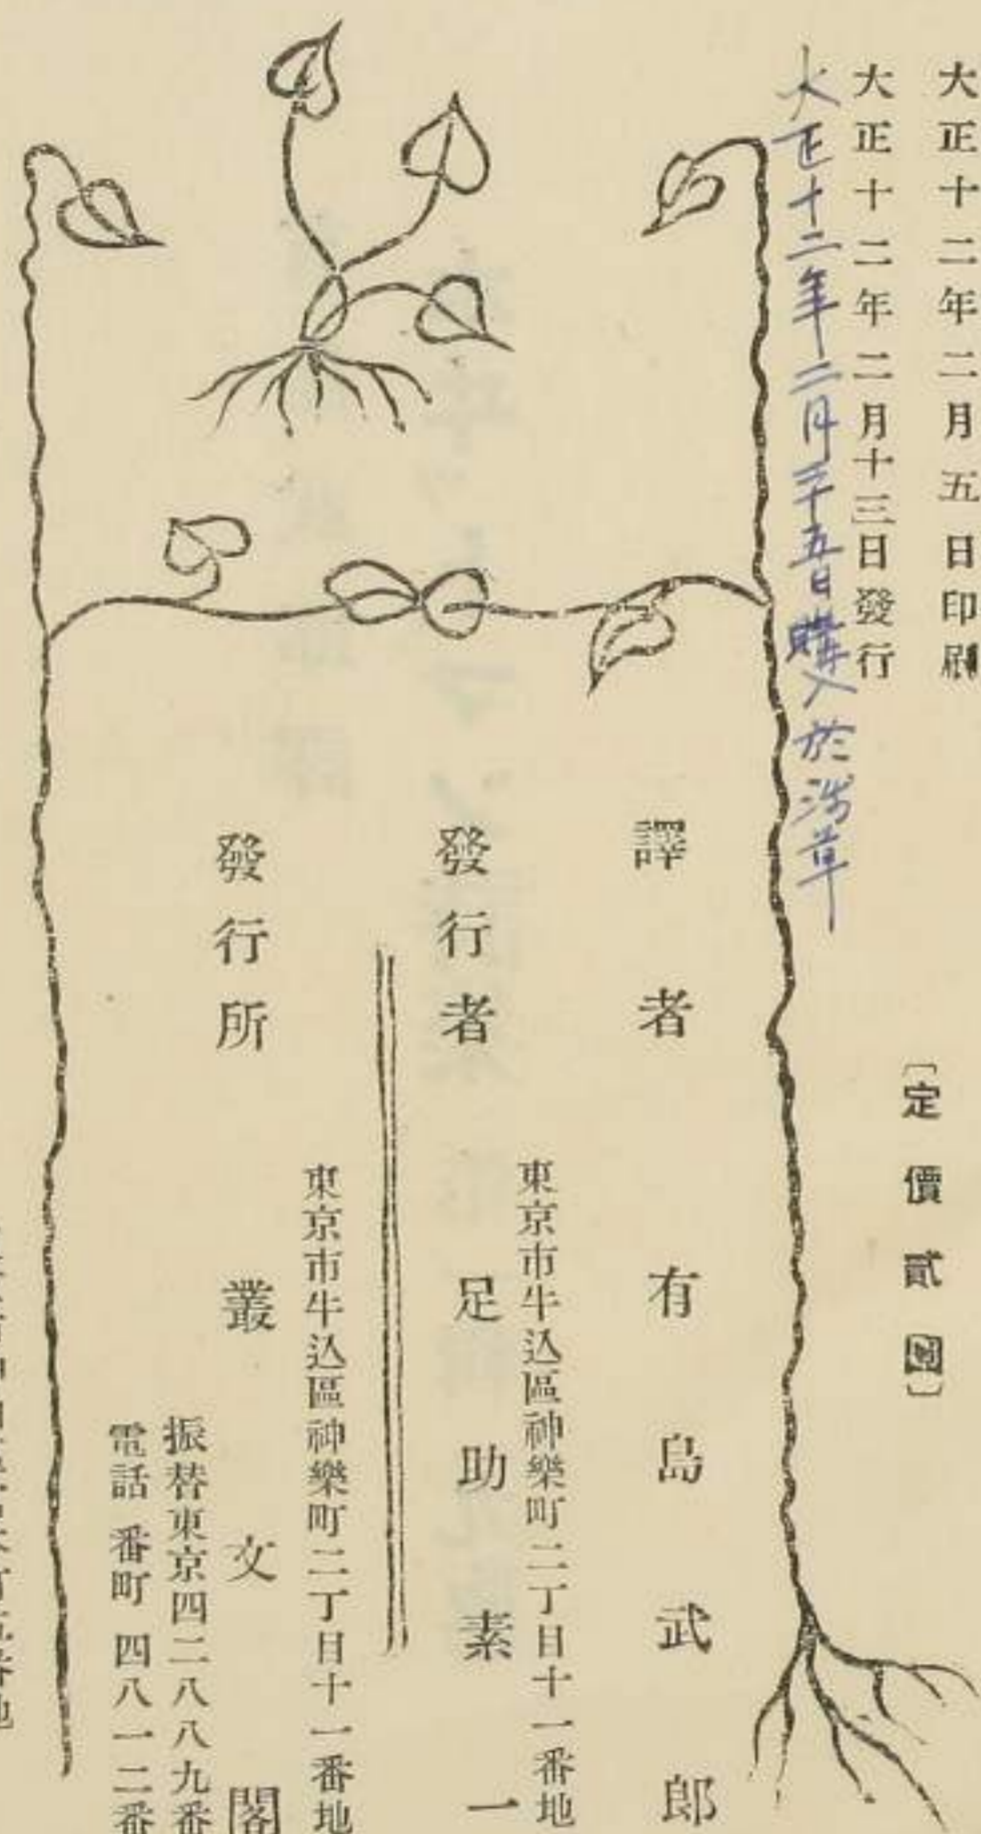 大正十二年二月五日印刷
大正十二年二月十三日發行
大正十二年二月二十五日購入於浅草
〔定價貳圓〕
譯者 有島武郎
東京市牛込區神樂町二丁目十一番地
發行者 足助素一
東京市牛込區神樂町二丁目十一番地
發行所 叢文閣
振替東京四二八八九番
電話番町四八一二番